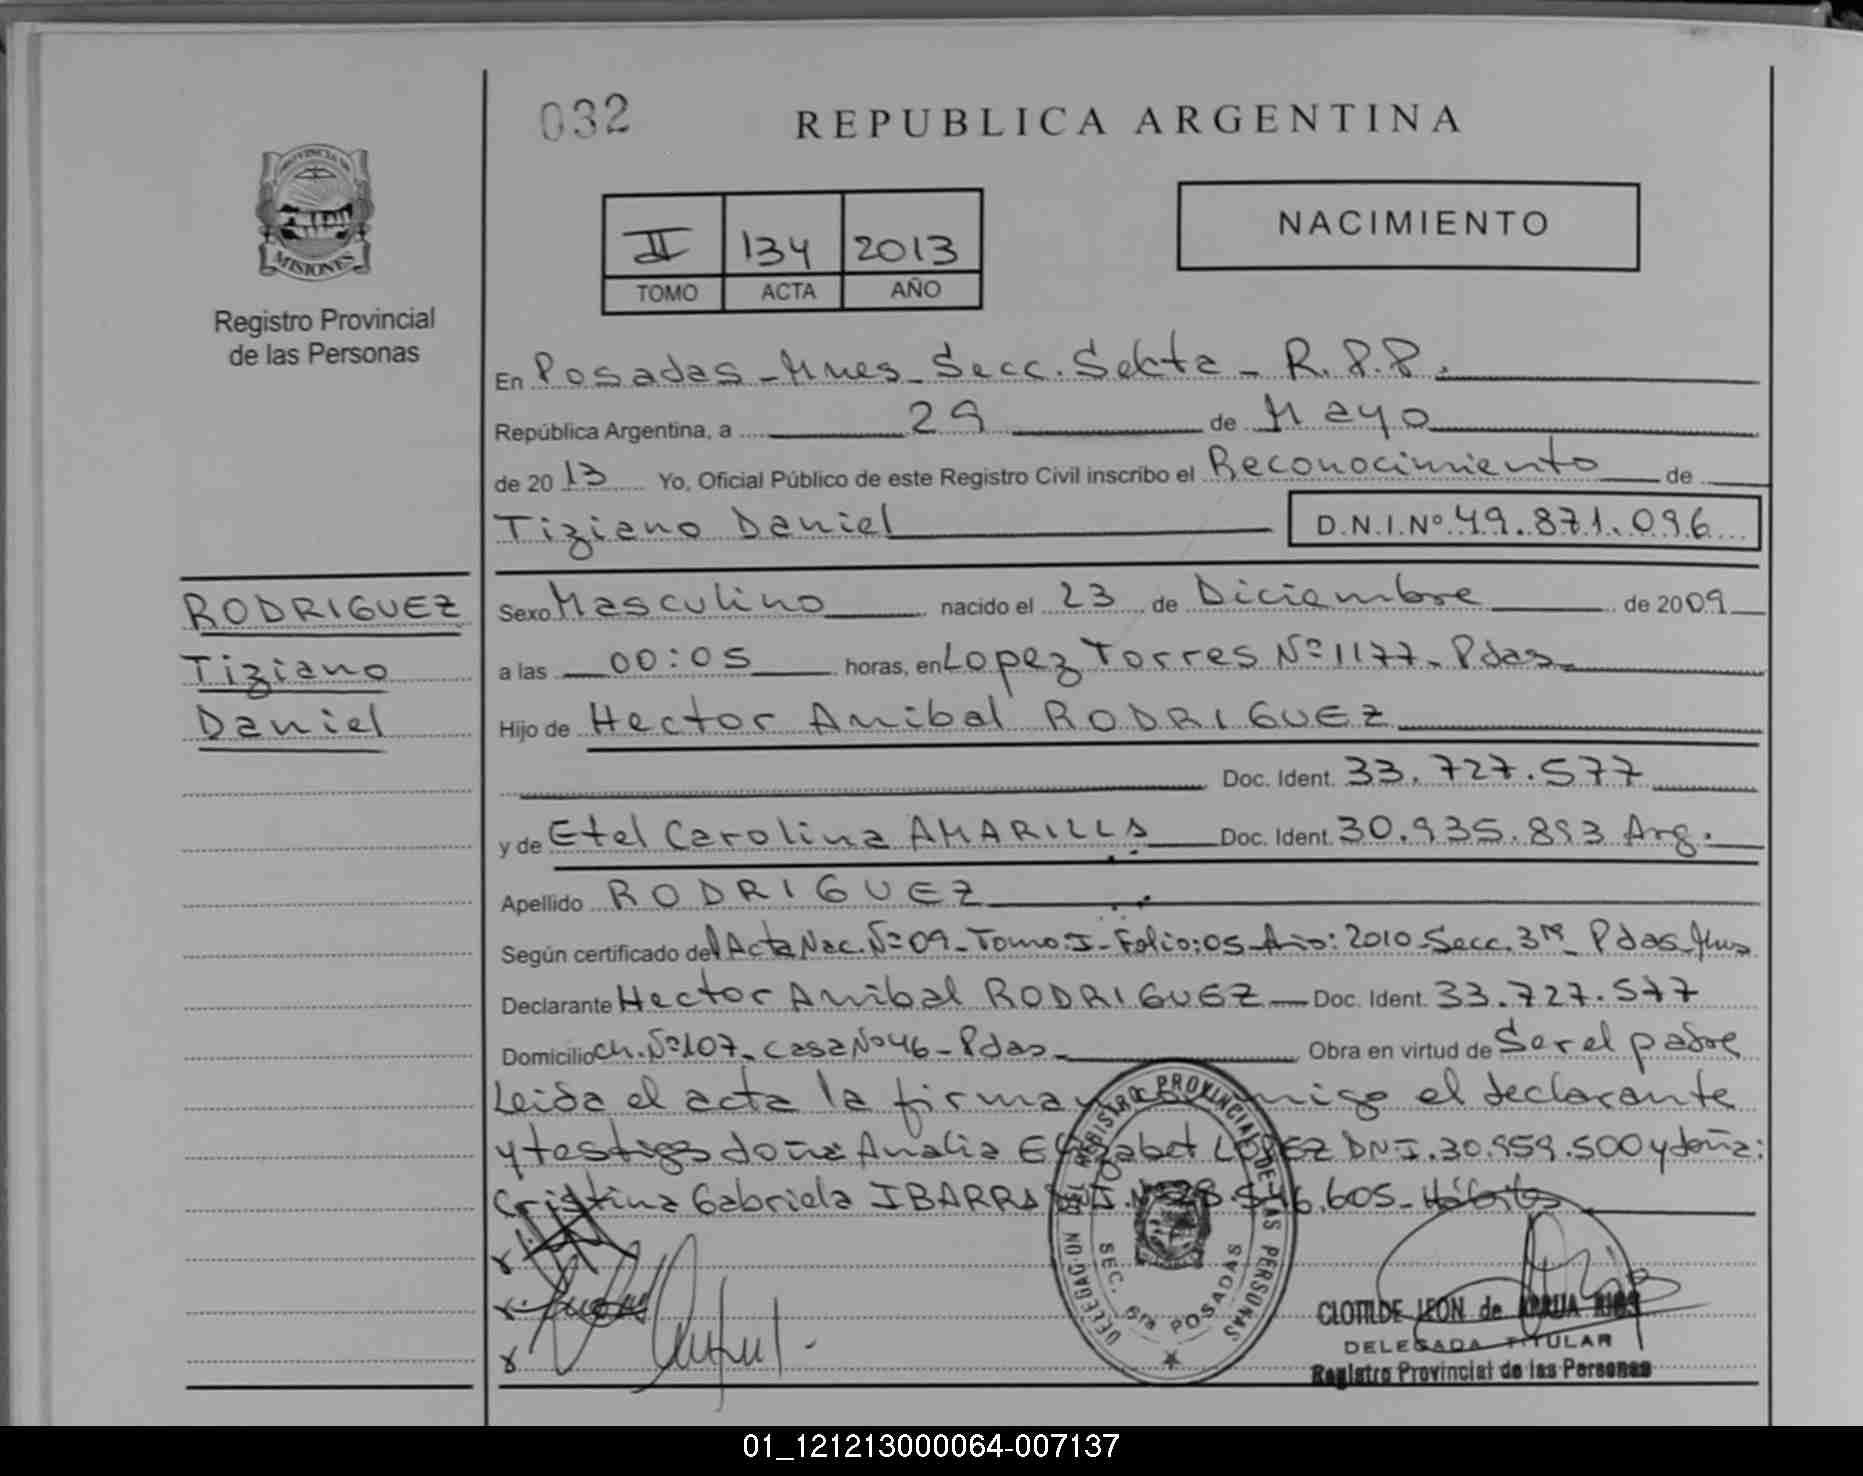 032
REPUBLICA ARGENTINA
PROVINCIA DE
MISIONES
Registro Provincial
de las Personas
II 134 2013
TOMO ACTA AÑO
NACIMIENTO
En Posadas - Mnes - Secc. Sekta - R.P.P.
República Argentina, a 29 de Mayo
de 2013 Yo, Oficial Público de este Registro Civil inscribo el Reconocimiento de
Tiziano Daniel D.N.I.Nº 49.871.096
RODRIGUEZ
Tiziano
Daniel
Sexo Masculino nacido el 23 de Diciembre de 2009
a las 00:05 horas, en Lopez Torres Nº 1177 - Pdas
Hijo de Hector Anibal RODRIGUEZ
Doc. Ident. 33.727.577
y de Etel Carolina AMARILLA Doc. Ident. 30.935.893 Arg.
Apellido RODRIGUEZ
Según certificado del Acta Nac. Nº 09 - Tomo: I - Folio: 05 - Año: 2010 - Secc. 3ra - Pdas - Mnes
Declarante Hector Anibal RODRIGUEZ Doc. Ident. 33.727.577
Domicilio Ch. Nº 107 - Casa Nº 46 - Pdas Obra en virtud de Ser el padre
Leida el acta la firman conmigo el declarante
y testigos doña Analia Elizabet LOPEZ DNI. 30.959.500 y doña:
Cristina Gabriela IBARRA DNI. Nº 28. .605 - Hábiles
DELEGACION DEL REGISTRO PROVINCIAL DE LAS PERSONAS
SEC. 6ta POSADAS
CLOTILDE LEON de ARRUA RIOS
DELEGADA TITULAR
Registro Provincial de las Personas
01_121213000064-007137